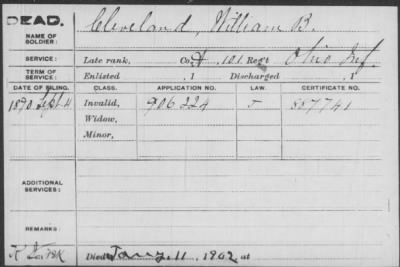 DEAD.
Cleveland, William B.
NAME OF SOLDIER:
SERVICE: Late rank, Co. 101 Reg't Ohio Inf.
TERM OF SERVICE: Enlisted , 1 Discharged , 1
DATE OF FILING. CLASS. APPLICATION NO. LAW. CERTIFICATE NO.
1890 Sept 4 Invalid, 906 224 887741
Widow,
Minor,
ADDITIONAL SERVICES:
REMARKS:
Died Jany. 11, 1902 at